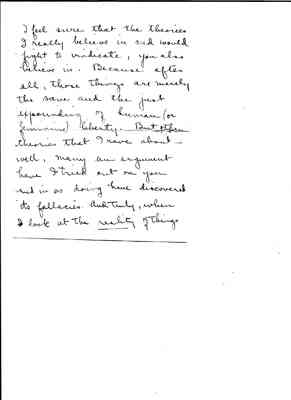 I feel sure that the theories
I really believe in and would
fight to vindicate, you also
believe in. Because after
all, those things are merely
the sane and the just
expounding of human (or
feminine) liberty. But
theories that I rave about –
well, many an argument
have I tried out on you
and in so doing have discovered
its fallacies. And truly, when
I look at the reality of things